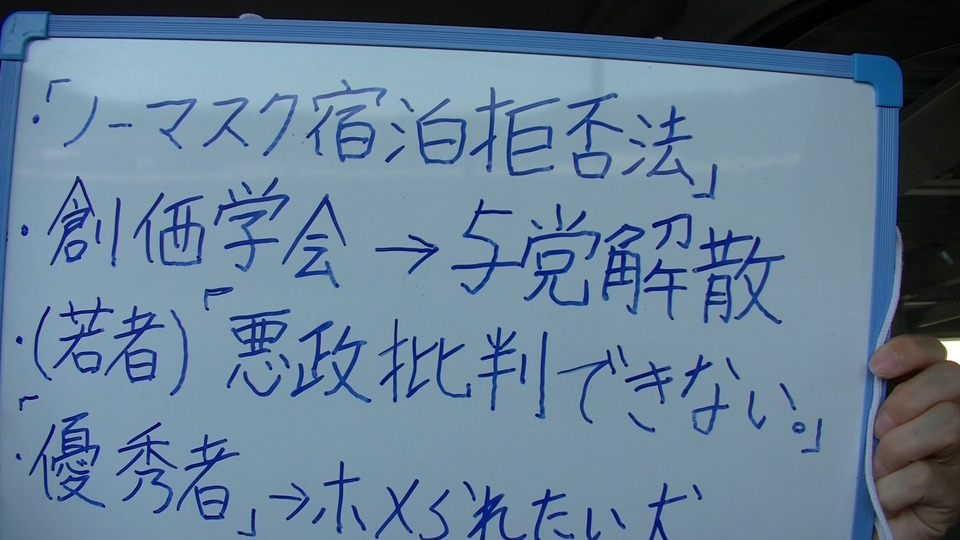 ・「ノーマスク宿泊拒否法」
・創価学会→与党解散
・(若者)「悪政批判できない。」
・「優秀者」→ホメられたい犬